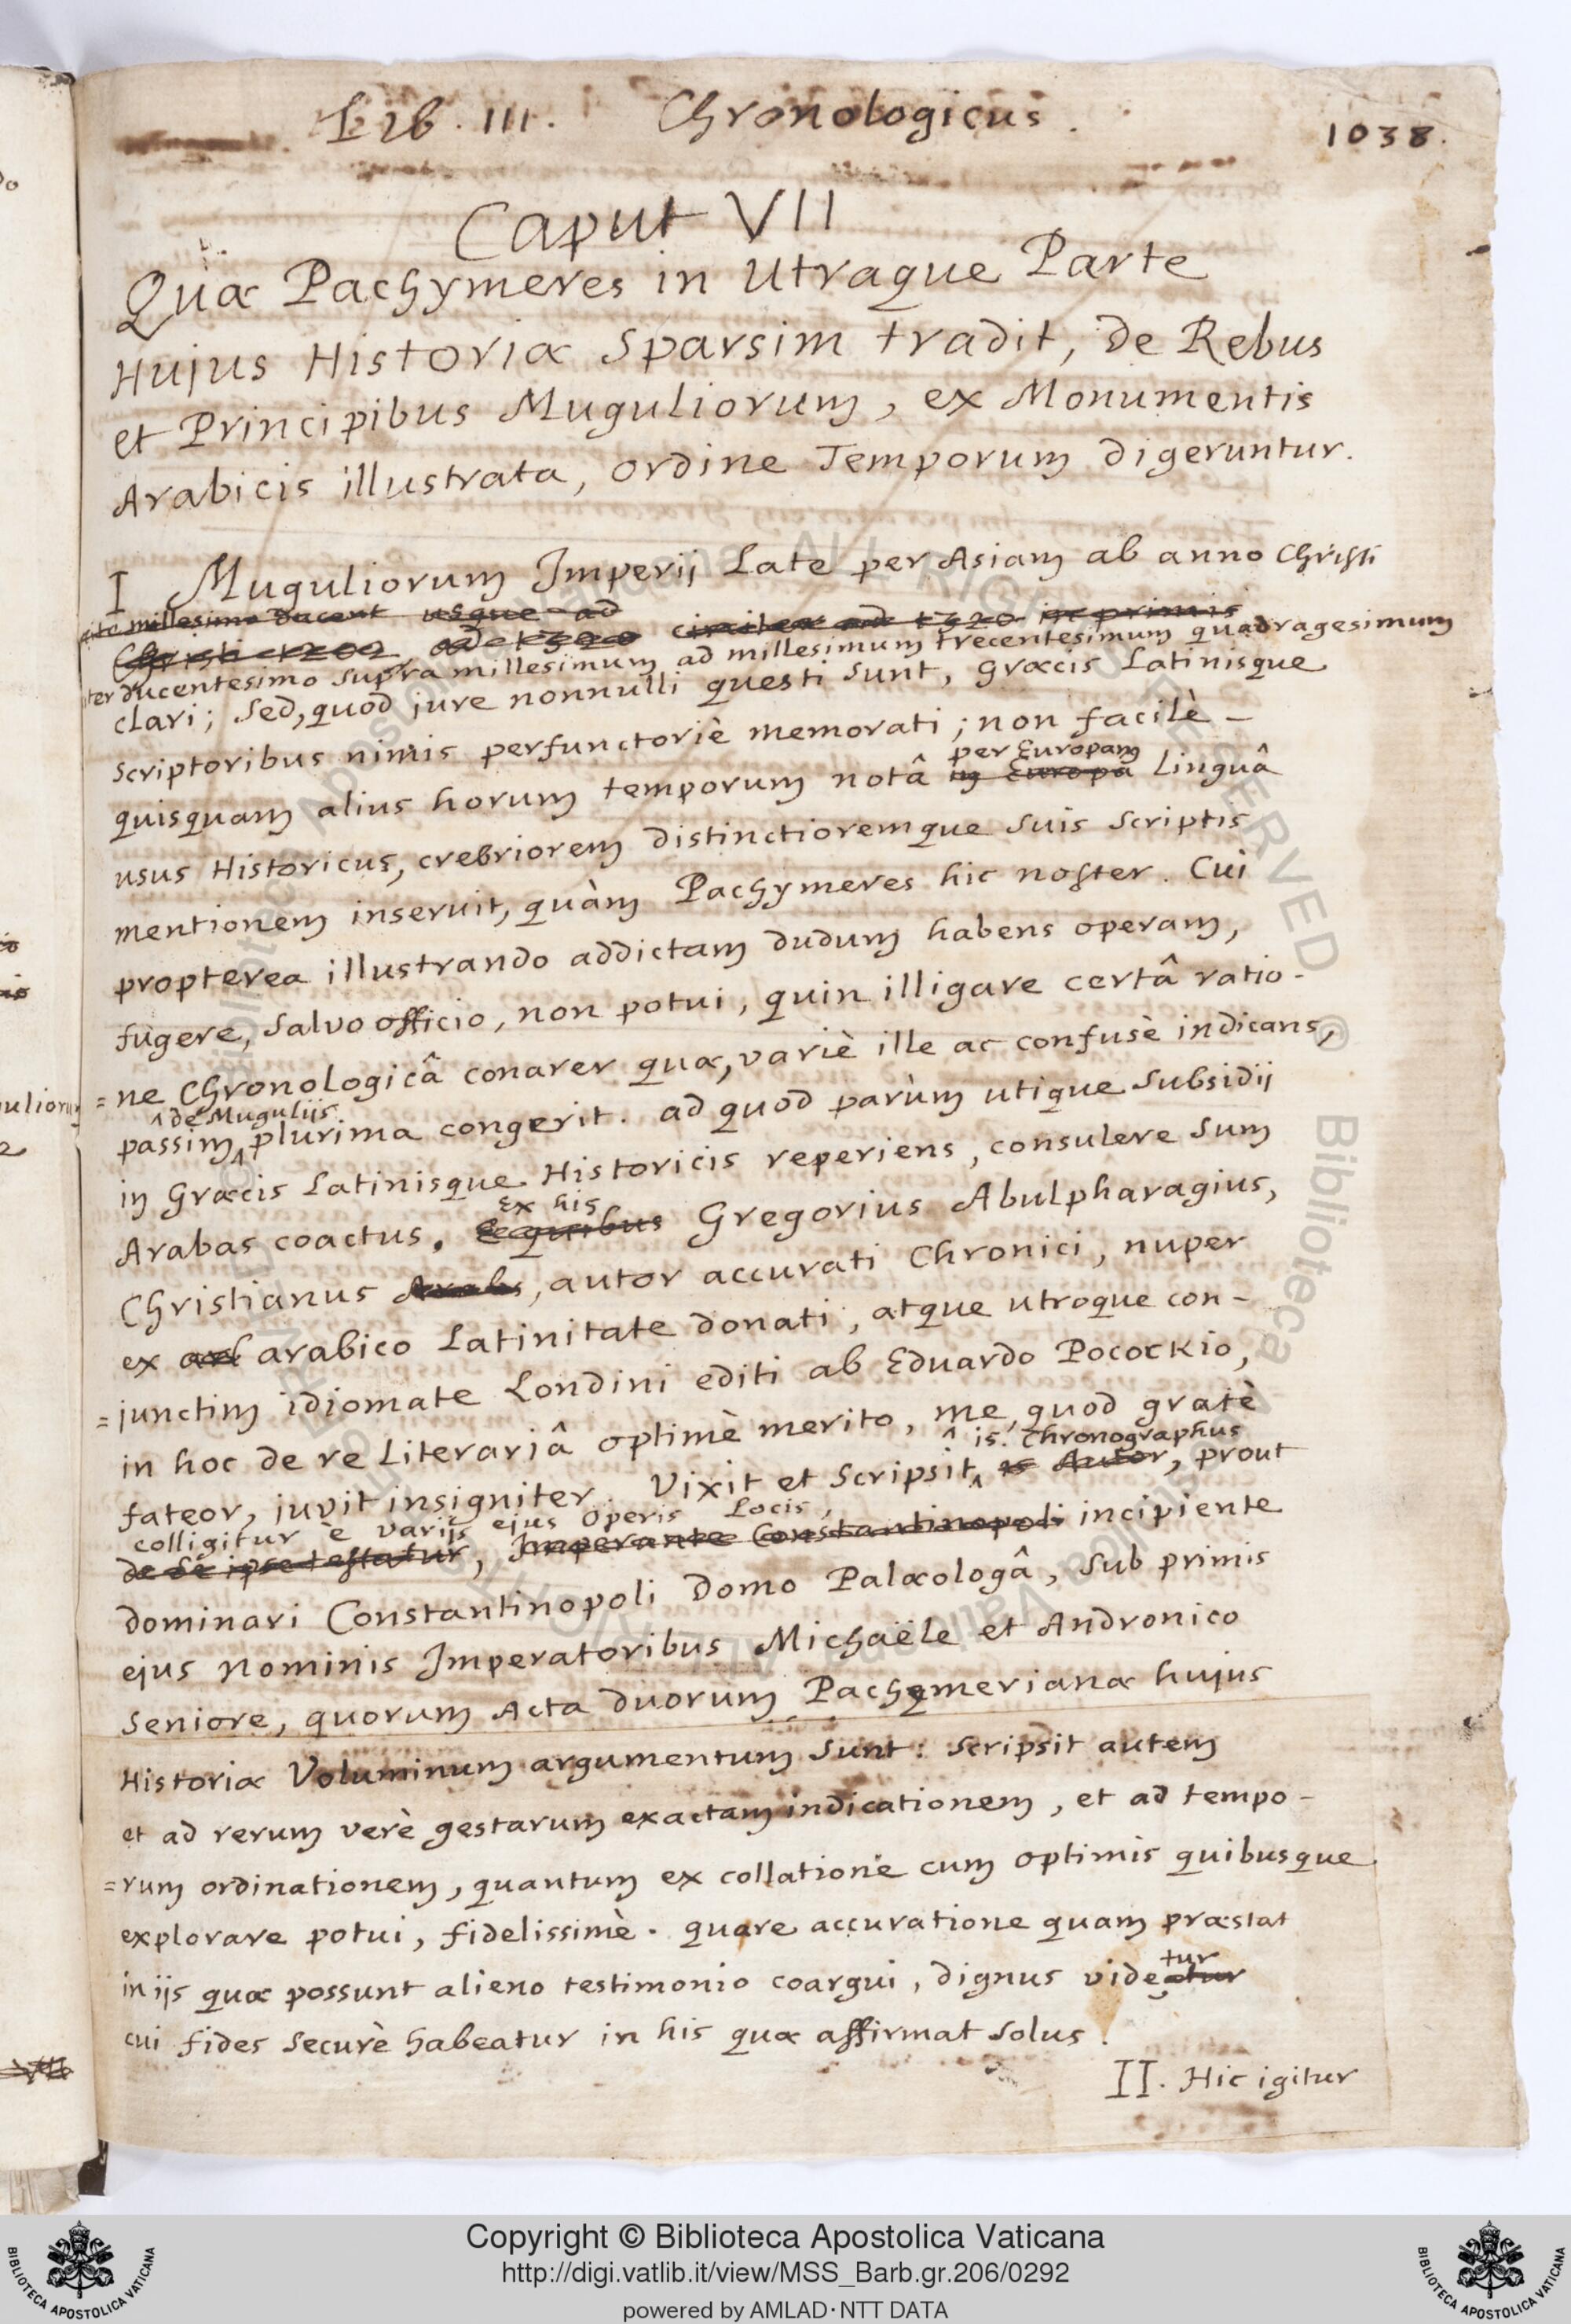 Lib. III. Chronologicus. 1038.
Caput VII
Quæ Pachymeres in Utraque Parte
Hujus Historiæ Sparsim tradit, de Rebus
et Principibus Muguliorum, ex Monumentis
Arabicis illustrata, ordine Temporum digeruntur.
I Muguliorum Imperij Late per Asiam ab anno Christi
millesimo ducent usque ad
Christi 1202 ad 1320 circiter ad 1320 in primis
ter ducentesimo supra millesimum ad millesimum trecentesimum quadragesimum
clari; Sed, quod jure nonnulli questi sunt, græcis Latinisque
Scriptoribus nimis perfunctoriè memorati; non facilè -
per Europam
quisquam alius horum temporum notâ in Europa Linguâ
usus Historicus, crebriorem distinctioremque suis scriptis
mentionem inseruit, quàm Pachymeres hic noster. Cui
propterea illustrando addictam dudum habens operam,
fugere, salvo officio, non potui, quin illigare certâ ratio-
=ne Chronologicâ conarer quæ, variè ille ac confusè indicans,
^ de Muguliis
passim ^ plurima congerit. ad quod parùm utique subsidij
in Græcis Latinisque Historicis reperiens, consulere sum
ex his
Arabas coactus. E quibus Gregorius Abulpharagius,
Christianus Arabs, autor accurati Chronici, nuper
ex arab arabico Latinitate donati, atque utroque con-
=junctim idiomate Londini editi ab Eduardo Pocockio,
in hoc de re Literariâ optimè merito, me, quod gratè
^ is. Chronographus
fateor, juvit insigniter. Vixit et scripsit ^ is Autor, prout
colligitur è varijs ejus operis Locis,
de se ipse testatur, Imperante Constantinopoli incipiente
dominari Constantinopoli Domo Palæologâ, sub primis
ejus Nominis Imperatoribus Michaële et Andronico
Seniore, quorum Acta duorum Pachymerianæ hujus
Historiæ Voluminum argumentum sunt: scripsit autem
et ad rerum verè gestarum exactam indicationem, et ad tempo-
=rum ordinationem, quantum ex collatione cum optimis quibusque
explorare potui, fidelissimè. quare accuratione quam præstat
in ijs quæ possunt alieno testimonio coargui, dignus videatur
tur
cui fides securè habeatur in his quæ affirmat solus.
II. Hic igitur
Copyright © Biblioteca Apostolica Vaticana
http://digi.vatlib.it/view/MSS_Barb.gr.206/0292
powered by AMLAD·NTT DATA
BIBLIOTECA APOSTOLICA VATICANA
BIBLIOTECA APOSTOLICA VATICANA